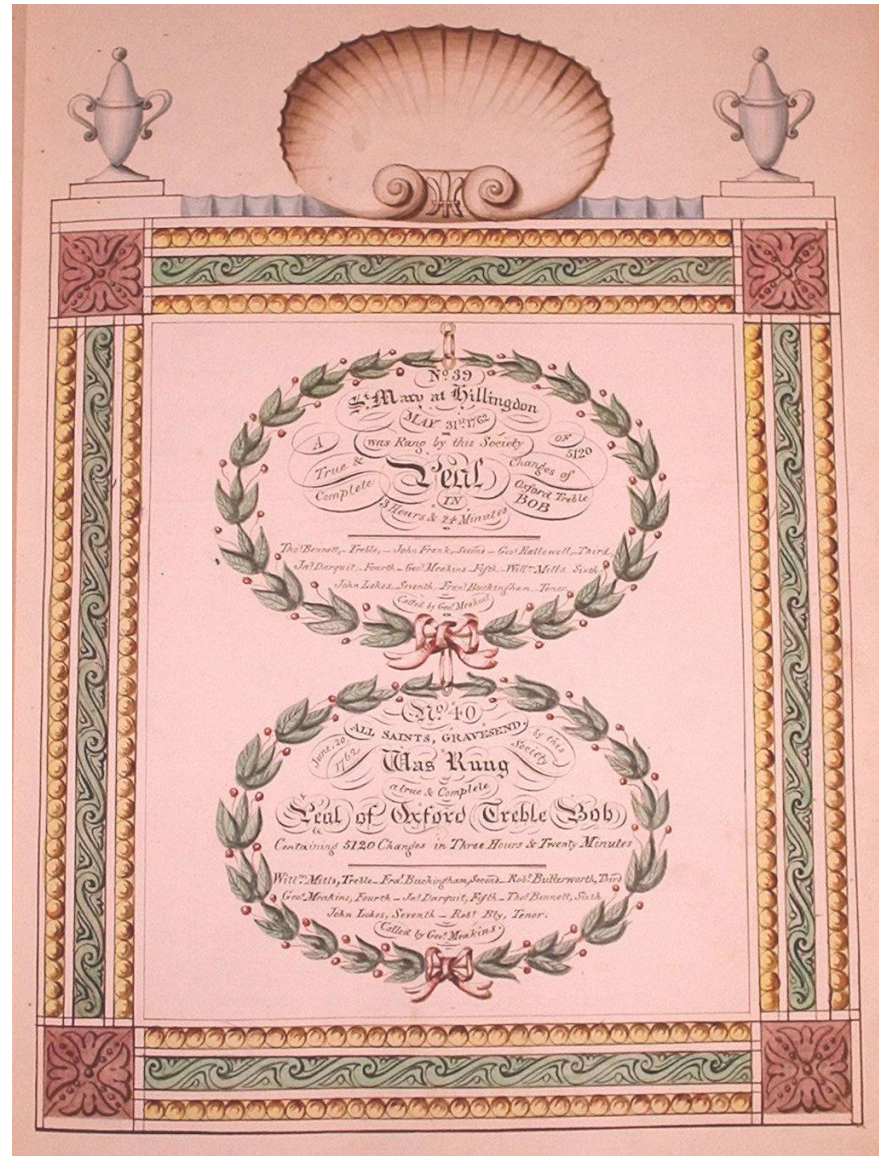 No. 39
St. Mary at Hillingdon
MAY 31st. 1762
was Rung by this Society
A
True &
Complete
Peal
IN
3 Hours & 24 Minutes
OF
5120
Changes of
Oxford Treble
BOB
Thos. Bennett,- Treble,- John Frank, Second - Geo. Hallowell, Third,
Jas. Darquit, - Fourth - Geo. Meakins - Fifth - Willm. Mills, Sixth
John Lokes, Seventh Frans. Buckingham - Tenor
Called by Geo. Meakins
No. 40
ALL SAINTS, GRAVESEND.
June. 20,
1762
by this
Society
Was Rung
a true & Complete
Peal of Oxford Treble Bob
Containing 5120 Changes in Three Hours & Twenty Minutes
Willm. Mills, Treble - Fras. Buckingham, Second - Robt. Butterworth, Third
Geo. Meakins, Fourth - Jas. Darquit, Fifth - Thos. Bennett, Sixth
John Lokes, Seventh - Robt. Bly, Tenor.
Called by Geo. Meakins.